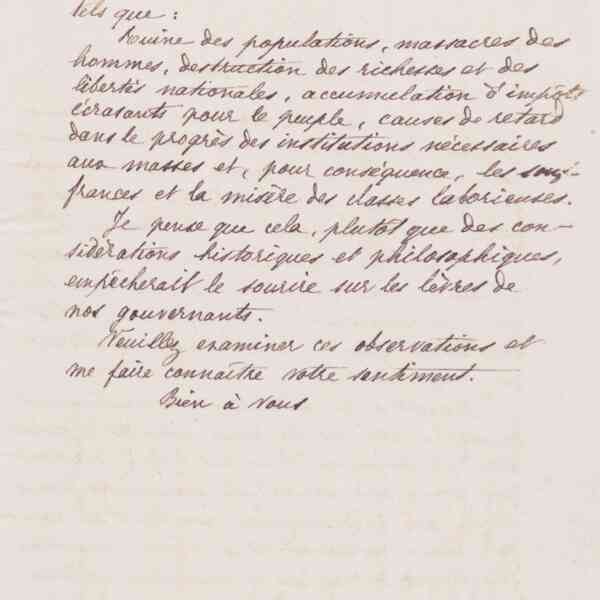 Tels que :
Ruine des populations, massacres des
hommes, destruction des richesses et des
libertés nationales, accumulation d'impôts
écrasants pour le peuple, causes de retard
dans le progrès des institutions nécessaires
aux masses et, pour conséquence, les souf-
frances et la misère des classes laborieuses.
Je pense que cela, plutôt que des con-
sidérations historiques et philosophiques,
empêcherait le sourire sur les lèvres de
nos gouvernants.
Veuillez examiner ces observations et
me faire connaître votre sentiment.
Bien à vous